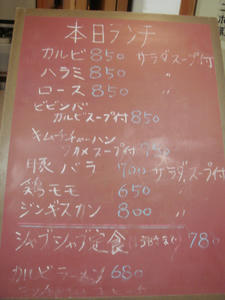 本日ランチ
カルビ 850 サラダスープ付
ハラミ 850 〃
ロース 850 〃
ビビンバ
カルビスープ付 850
キムチチャーハン
ワカメスープ付
豚バラ 700 サラダ、スープ付
鶏モモ 650 〃
ジンギスカン 800 〃
シャブシャブ定食 780
カルビラーメン 680